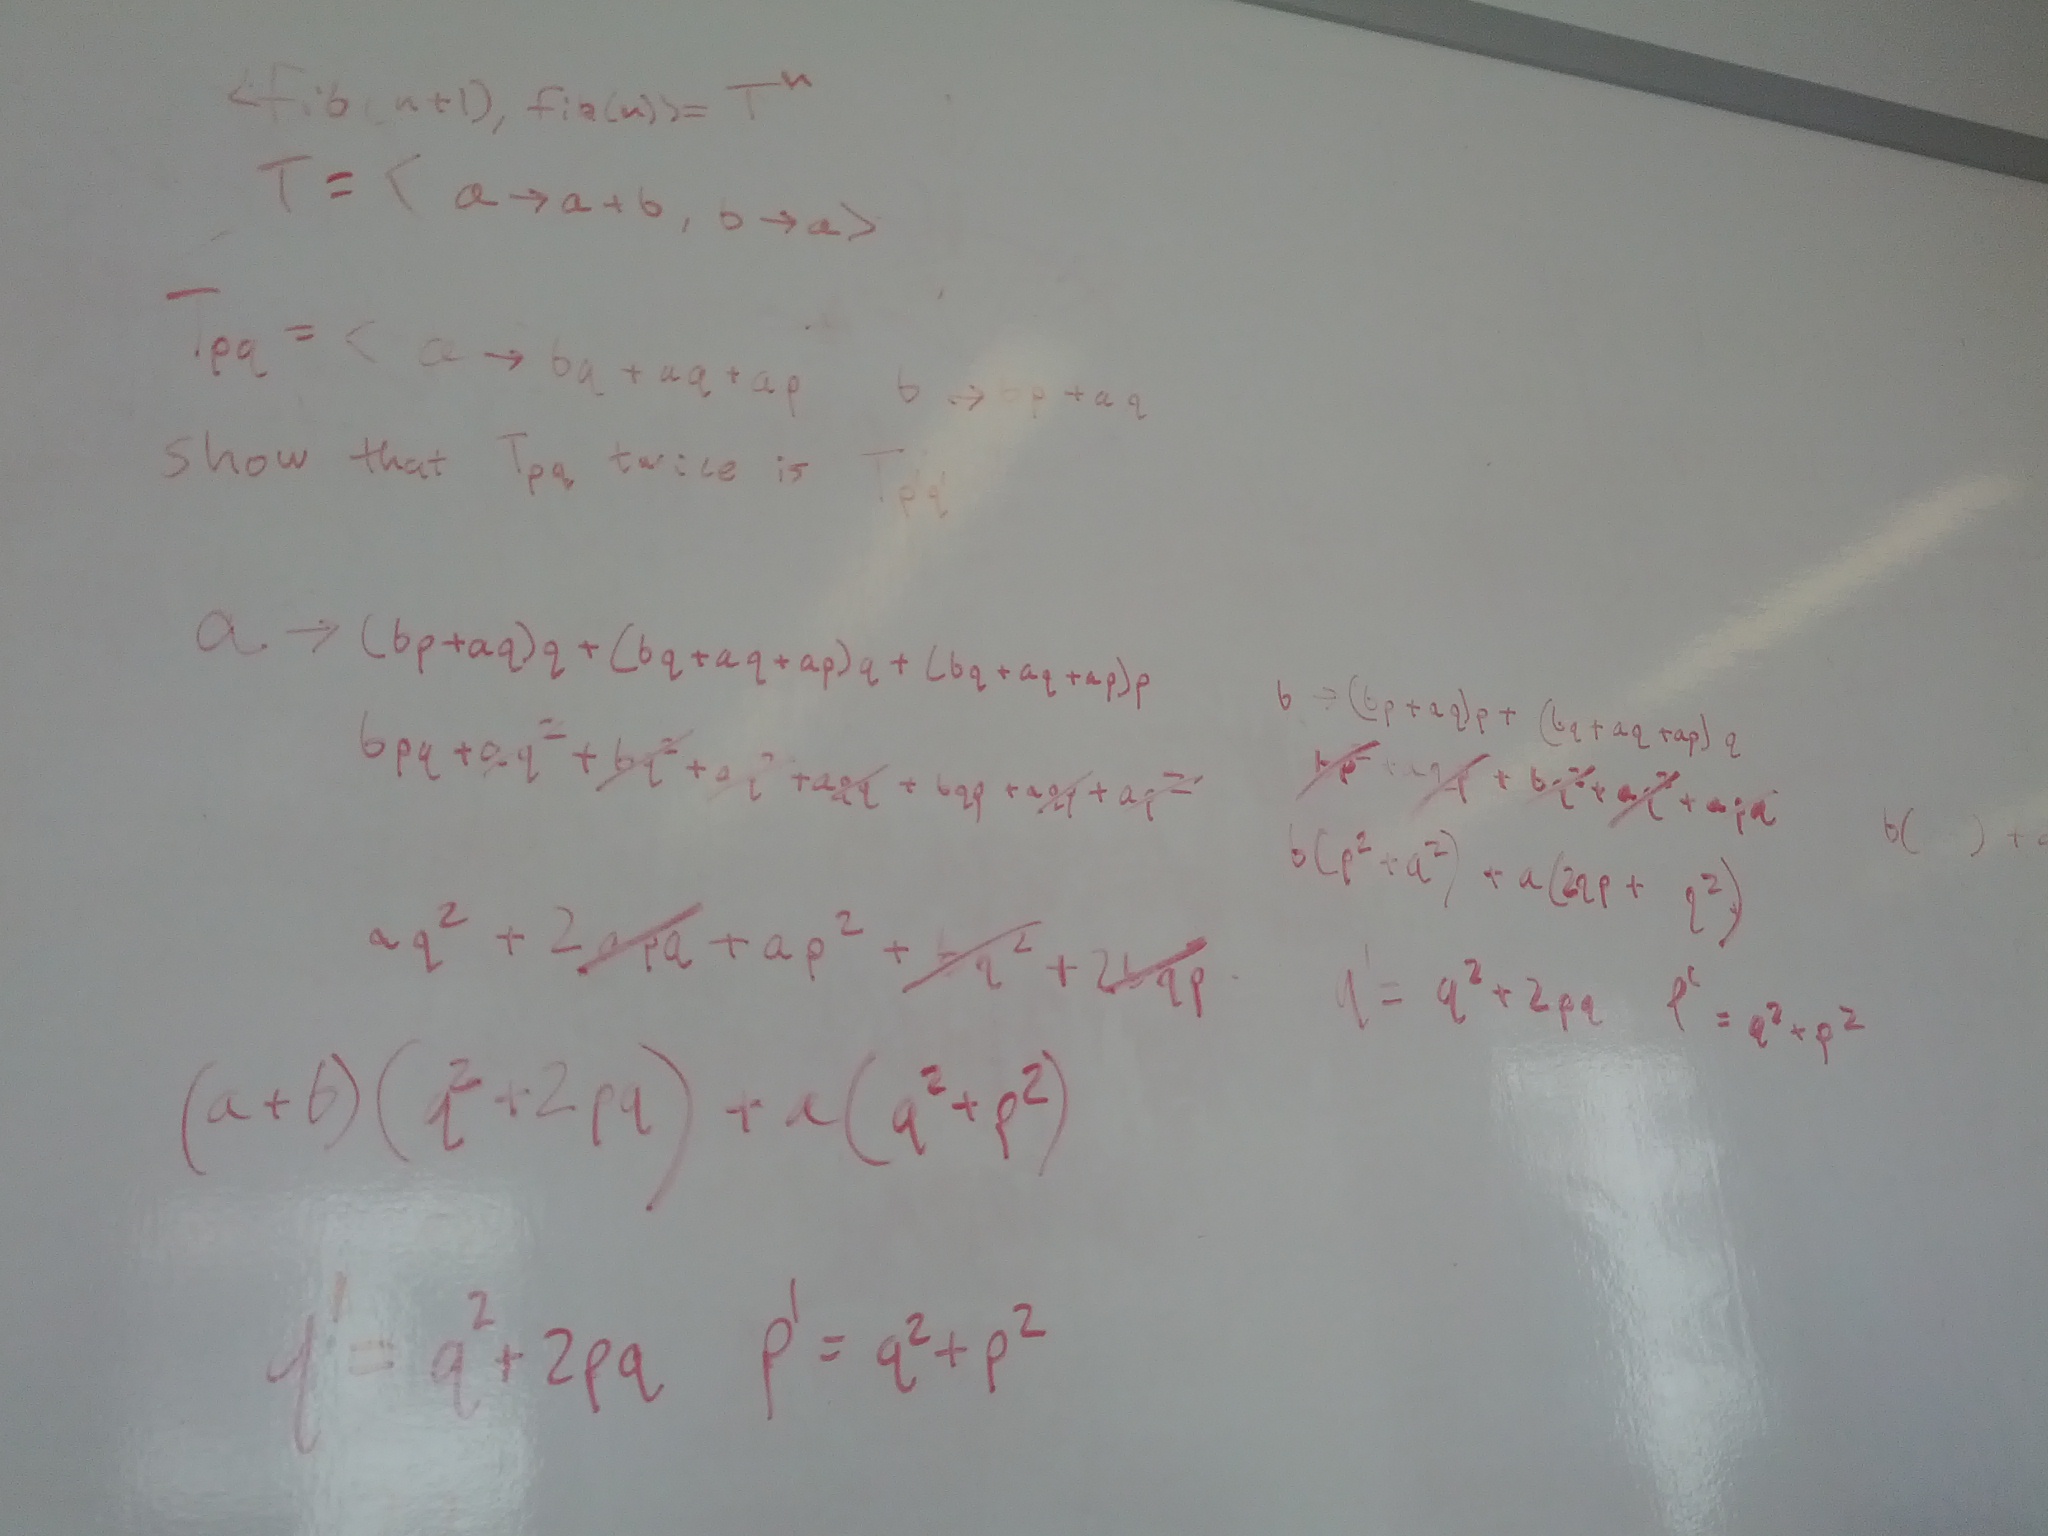 <fib(n+1), fib(n)> = Tⁿ
T = < a → a + b, b → a >
Tpq = < a → bq + aq + ap b → bp + aq
show that Tpq twice is Tp'q'
a → (bp+aq)q + (bq+aq+ap)q + (bq+aq+ap)p
bpq + aq² + bq² + aq² + apq + bqp + aqp + ap²
aq² + 2apq + ap² + bq² + 2bqp
(a+b)(q²+2pq) + a(q²+p²)
q' = q² + 2pq p' = q² + p²
b → (bp+aq)p + (bq+aq+ap)q
bp² + aqp + bq² + aq² + apq
b(p²+q²) + a(2qp + q²)
q' = q² + 2pq p' = q² + p²
b( ) + a